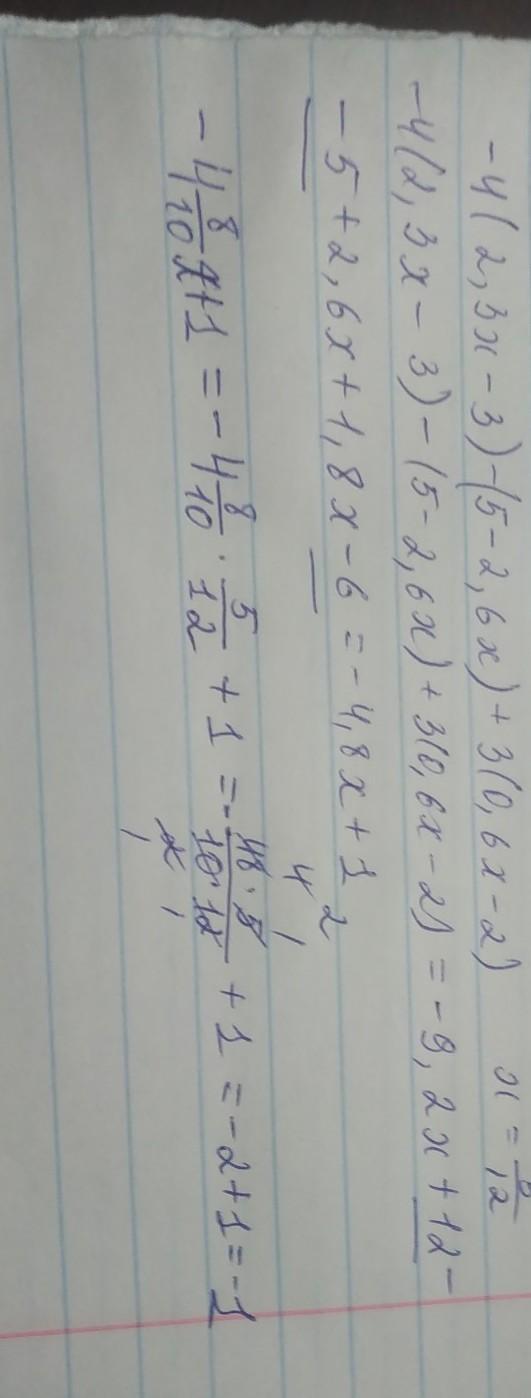 -4(2,3x-3)-(5-2,6x)+3(0,6x-2) x=5/12
-4(2,3x-3)-(5-2,6x)+3(0,6x-2)=-9,2x+12-
-5+2,6x+1,8x-6=-4,8x+1
-4 8/10 x+1=-4 8/10 · 5/12 +1=- 48·5/10·12 +1=-2+1=-1